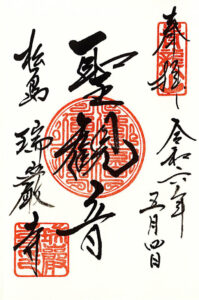 奉拝
令和六年
五月四日
聖観音
松島
瑞巌寺